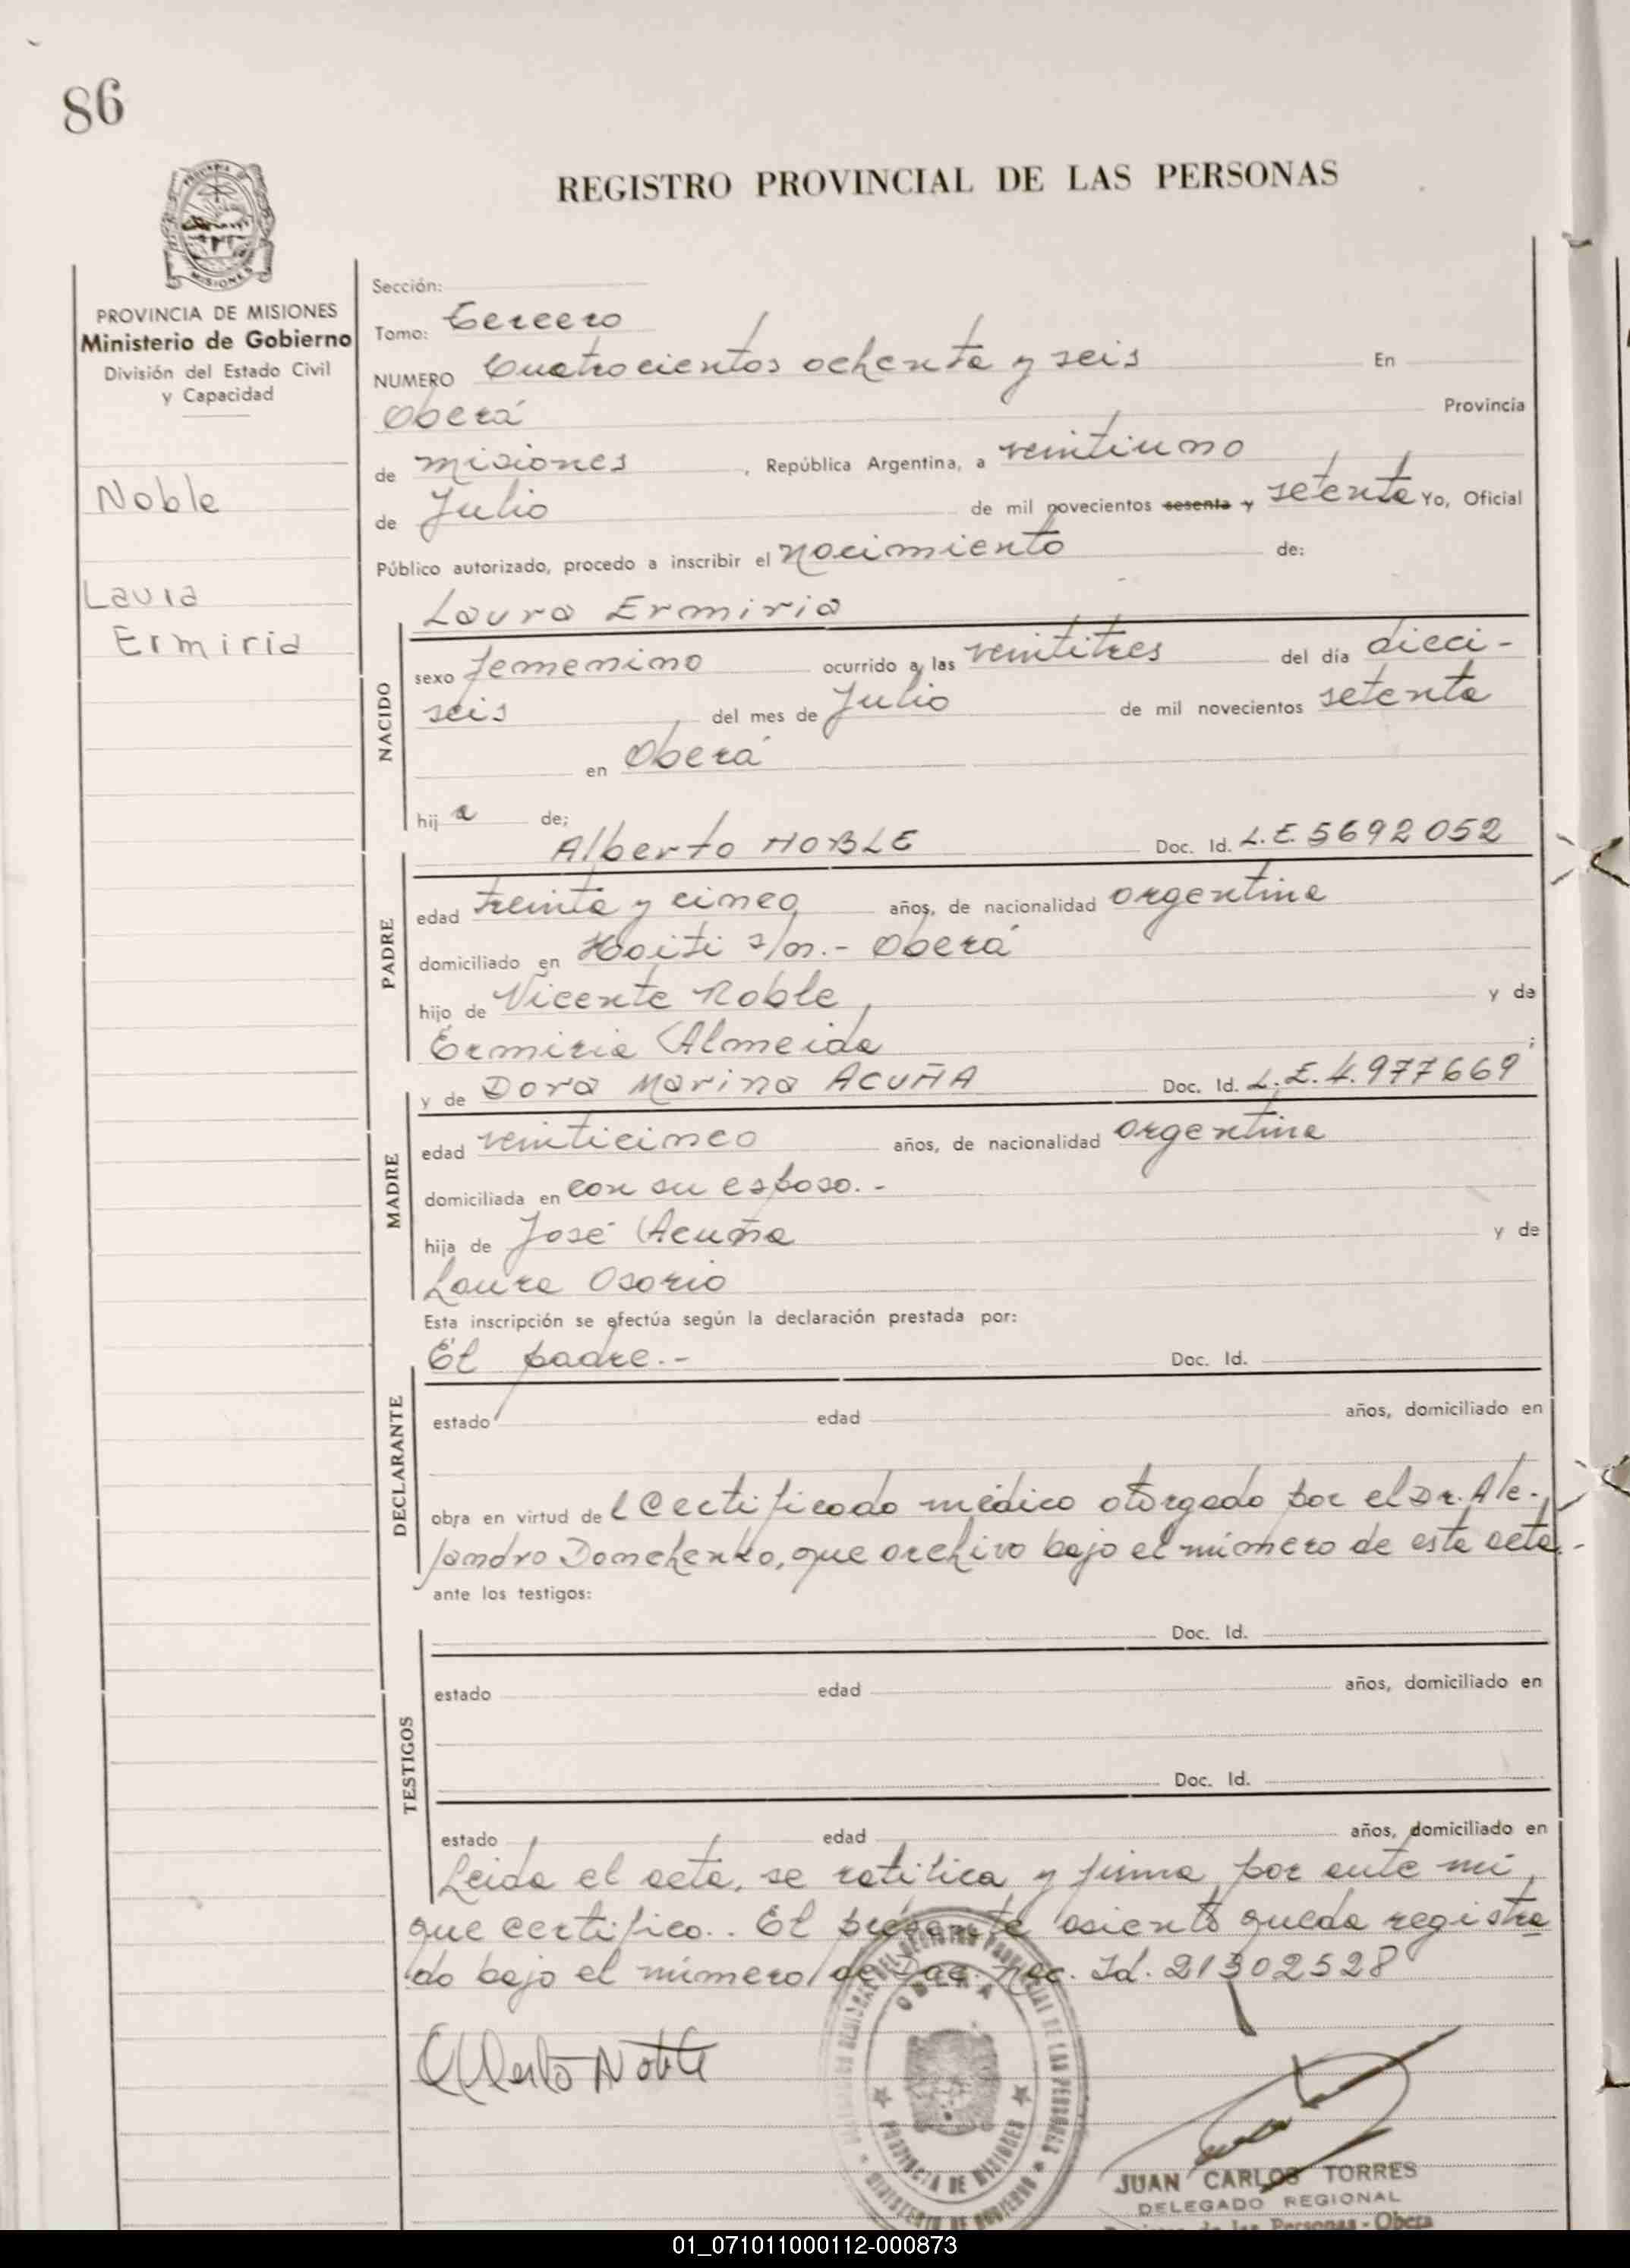 86
REGISTRO PROVINCIAL DE LAS PERSONAS
PROVINCIA DE MISIONES
Ministerio de Gobierno
División del Estado Civil
y Capacidad
Noble
Laura
Ermiria
Sección:
Tomo: Tercero
NUMERO Cuatrocientos ochenta y seis En
Oberá Provincia
de misiones, República Argentina, a veintiuno
de Julio de mil novecientos sesenta y setenta Yo, Oficial
Público autorizado, procedo a inscribir el nacimiento de:
Laura Ermiria
NACIDO
sexo femenino ocurrido a las veintitres del día dieci-
seis del mes de Julio de mil novecientos setenta
en Oberá
hij a de;
Alberto NOBLE Doc. Id. L.E. 5692052
PADRE
edad treinta y cinco años, de nacionalidad argentina
domiciliado en Haiti s/n.- Oberá
hijo de Vicente Noble, y de
Ermiria Almeida ;
y de Dora Marina ACUÑA Doc. Id. L.E. 4.977669
MADRE
edad veinticinco años, de nacionalidad argentina
domiciliada en con su esposo.-
hija de José Acuña y de
Laura Osorio
Esta inscripción se efectúa según la declaración prestada por:
El padre.- Doc. Id.
DECLARANTE
estado edad años, domiciliado en
obra en virtud de l Certificado médico otorgado por el Dr. Ale-
jandro Domchenko, que archivo bajo el número de esta acta.-
ante los testigos:
Doc. Id.
TESTIGOS
estado edad años, domiciliado en
Doc. Id.
estado edad años, domiciliado en
Leida el acta, se ratifica y firma por ante mi
que certifico.. El presente asiento queda registra
do bajo el número de Doc. Nac. Id. 21302528
Alberto Noble
OBERA
PROVINCIA DE MISIONES
MINISTERIO DE GOBIERNO
JUAN CARLOS TORRES
DELEGADO REGIONAL
de las Personas - Obera
01_071011000112-000873